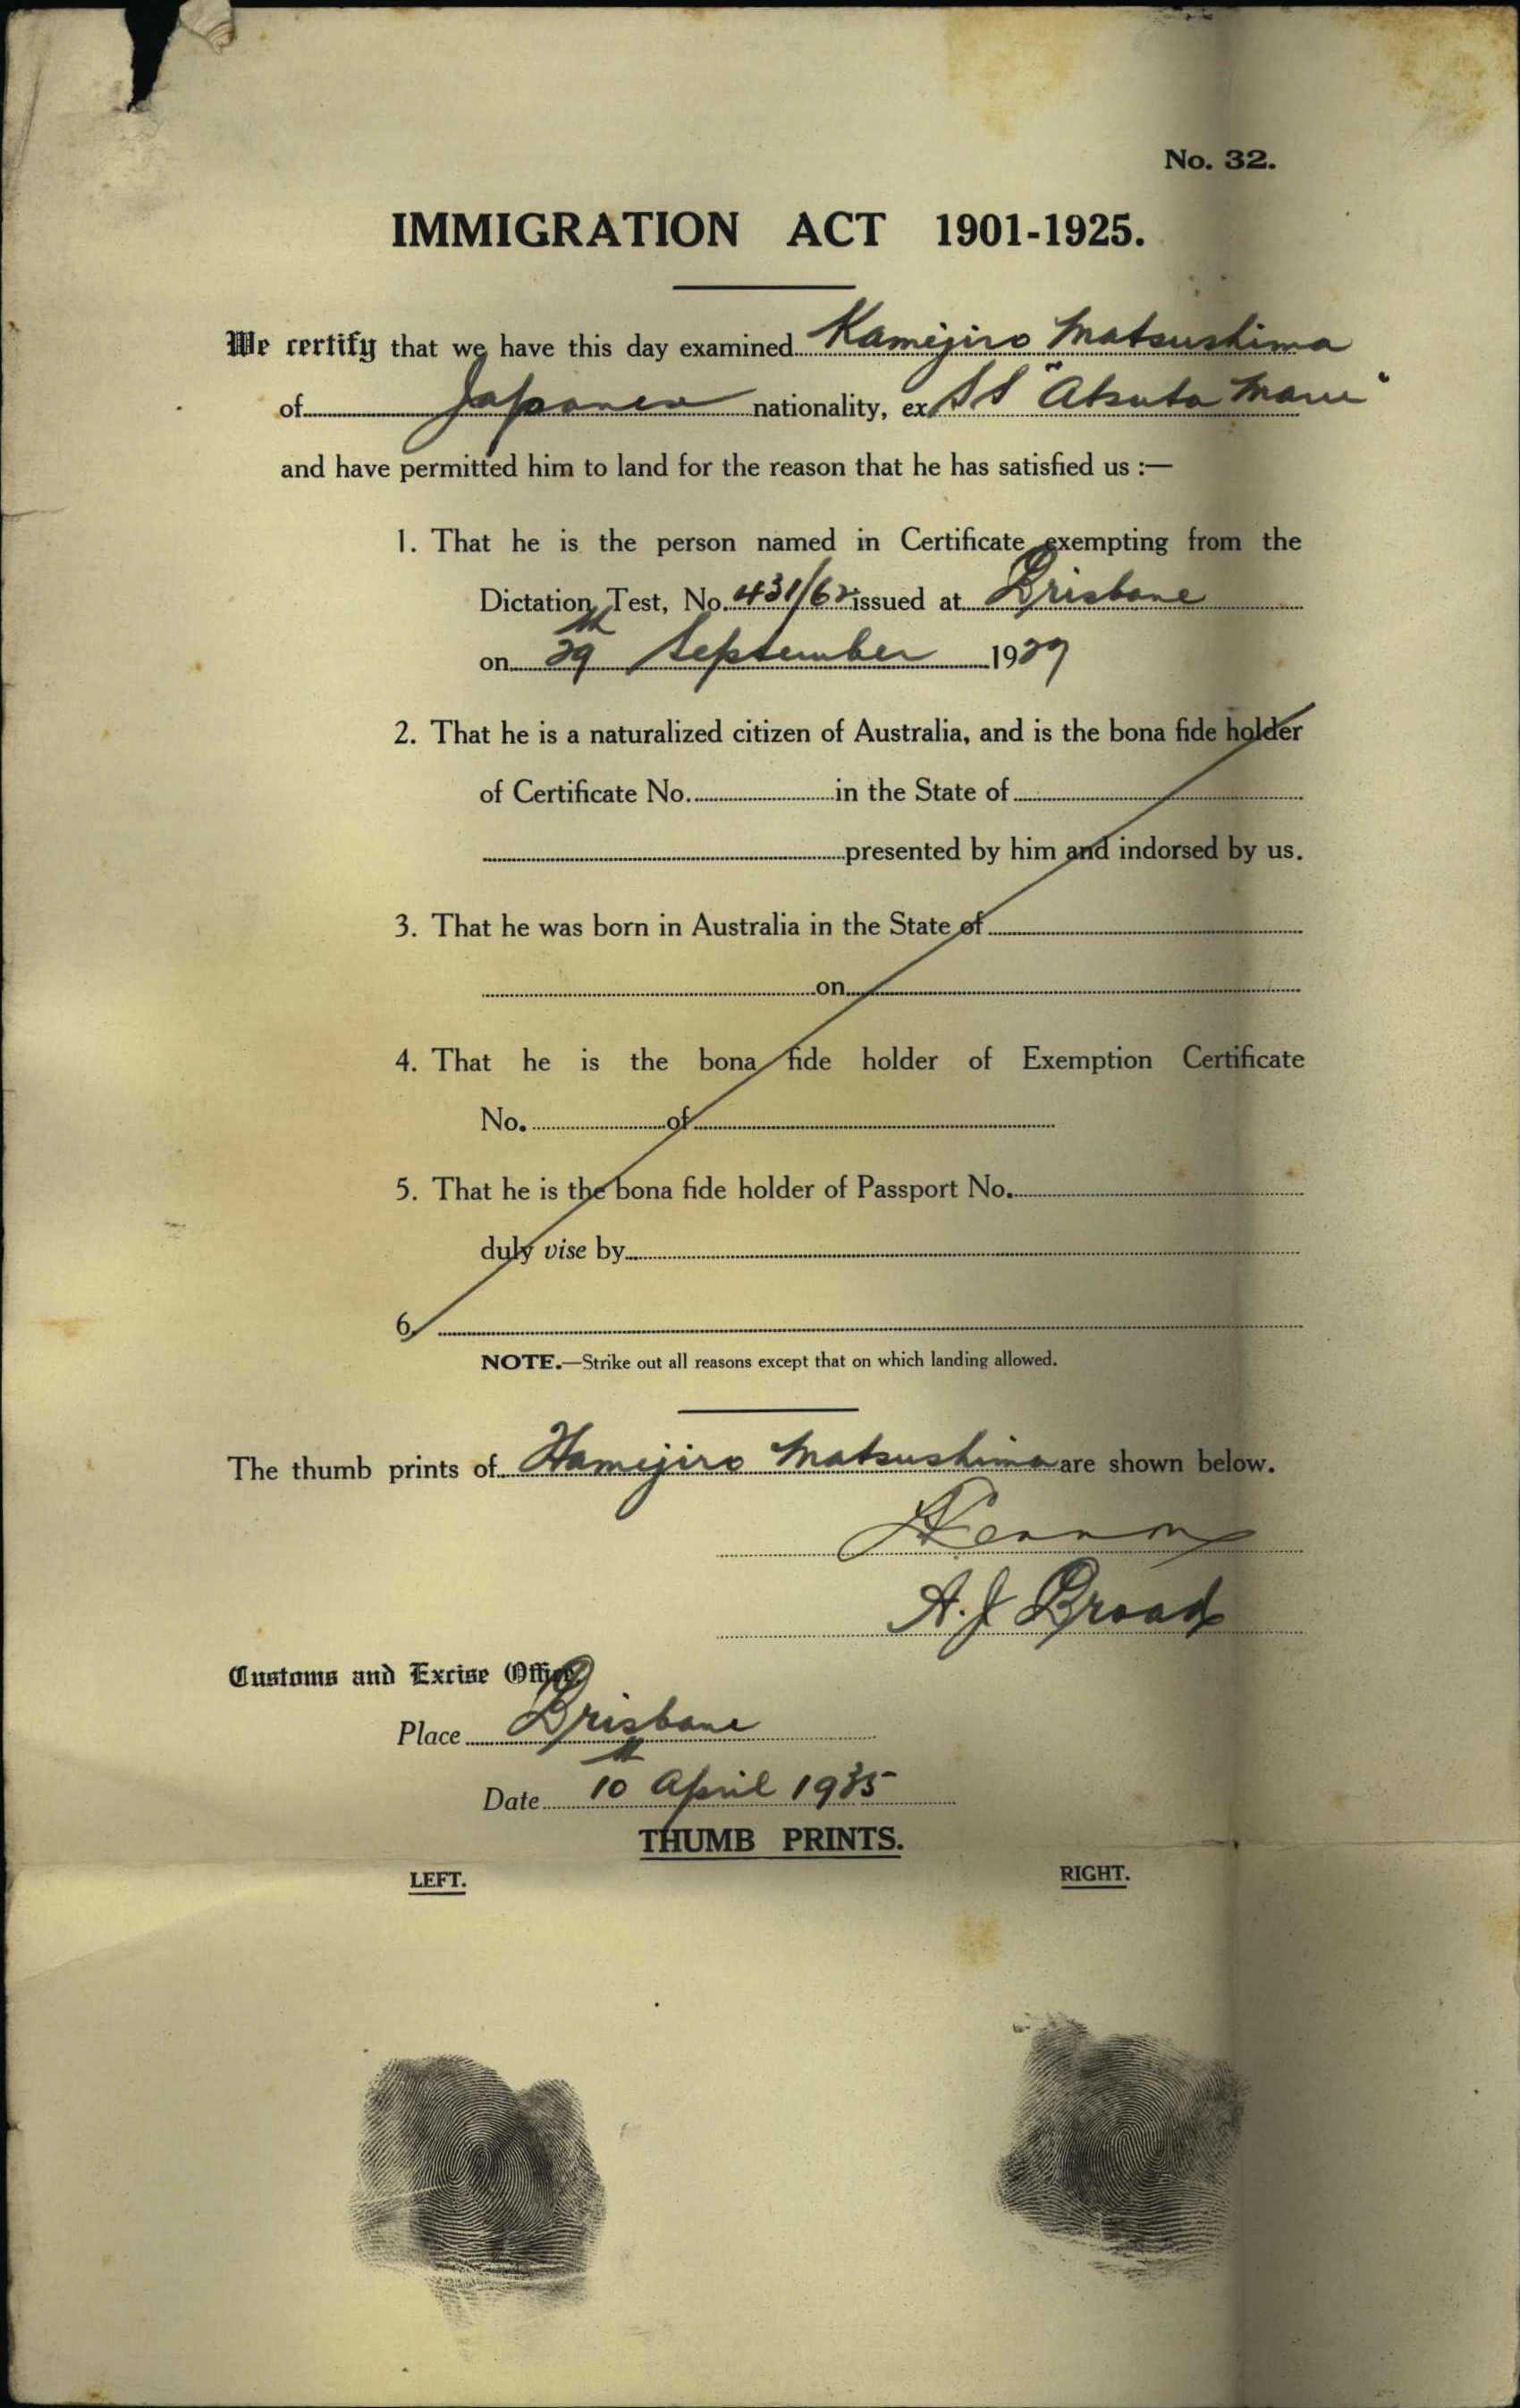 No. 32.
IMMIGRATION ACT 1901-1925.
We certify that we have this day examined Kamejiro Matsushima
of Japanese nationality, ex SS "Atsuta Maru"
and have permitted him to land for the reason that he has satisfied us :—
1. That he is the person named in Certificate exempting from the
Dictation Test, No. 431/62 issued at Brisbane
on 29th September 1929
2. That he is a naturalized citizen of Australia, and is the bona fide holder
of Certificate No. in the State of
presented by him and indorsed by us.
3. That he was born in Australia in the State of
on
4. That he is the bona fide holder of Exemption Certificate
No. of
5. That he is the bona fide holder of Passport No.
duly vise by
6.
NOTE.—Strike out all reasons except that on which landing allowed.
The thumb prints of Kamejiro Matsushima are shown below.
A.J Broad
Customs and Excise Office
Place Brisbane
Date 10th April 1935
THUMB PRINTS.
LEFT. RIGHT.